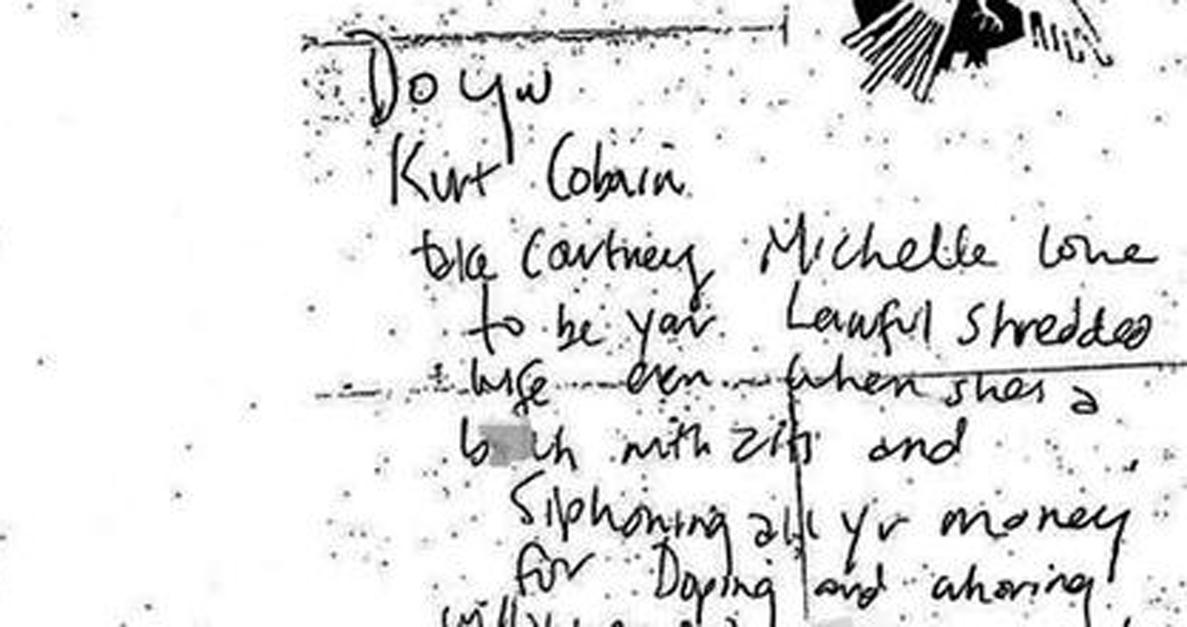 Do you
Kurt Cobain
take Courtney Michelle Love
to be your Lawful Shredded
wife even when shes a
b ch with zits and
Siphoning all yr money
for Doping and whoring
will you